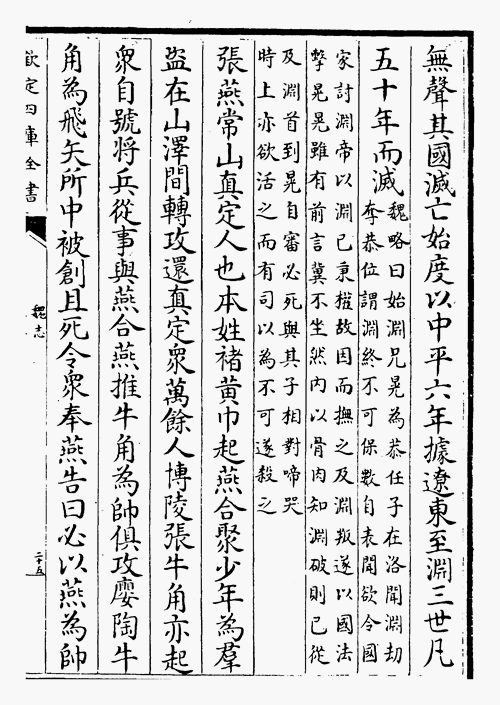 無聲其國滅亡始度以中平六年據遼東至淵三世凡
五十年而滅
魏略曰始淵兄晃為恭任子在洛聞淵劫
奪恭位謂淵終不可保數自表聞欲令國
家討淵帝以淵已秉權故因而撫之及淵叛遂以國法
擊晃晃雖有前言冀不坐然内以骨肉知淵破則已從
及淵首到晃自審必死與其子相對啼哭
時上亦欲活之而有司以為不可遂殺之
張燕常山真定人也本姓褚黄巾起燕合聚少年為羣
盗在山澤間轉攻還真定衆萬餘人博陵張牛角亦起
衆自號將兵從事與燕合燕推牛角為帥俱攻廮陶牛
角為飛矢所中被創且死令衆奉燕告曰必以燕為帥
欽定四庫全書
魏志
二十五